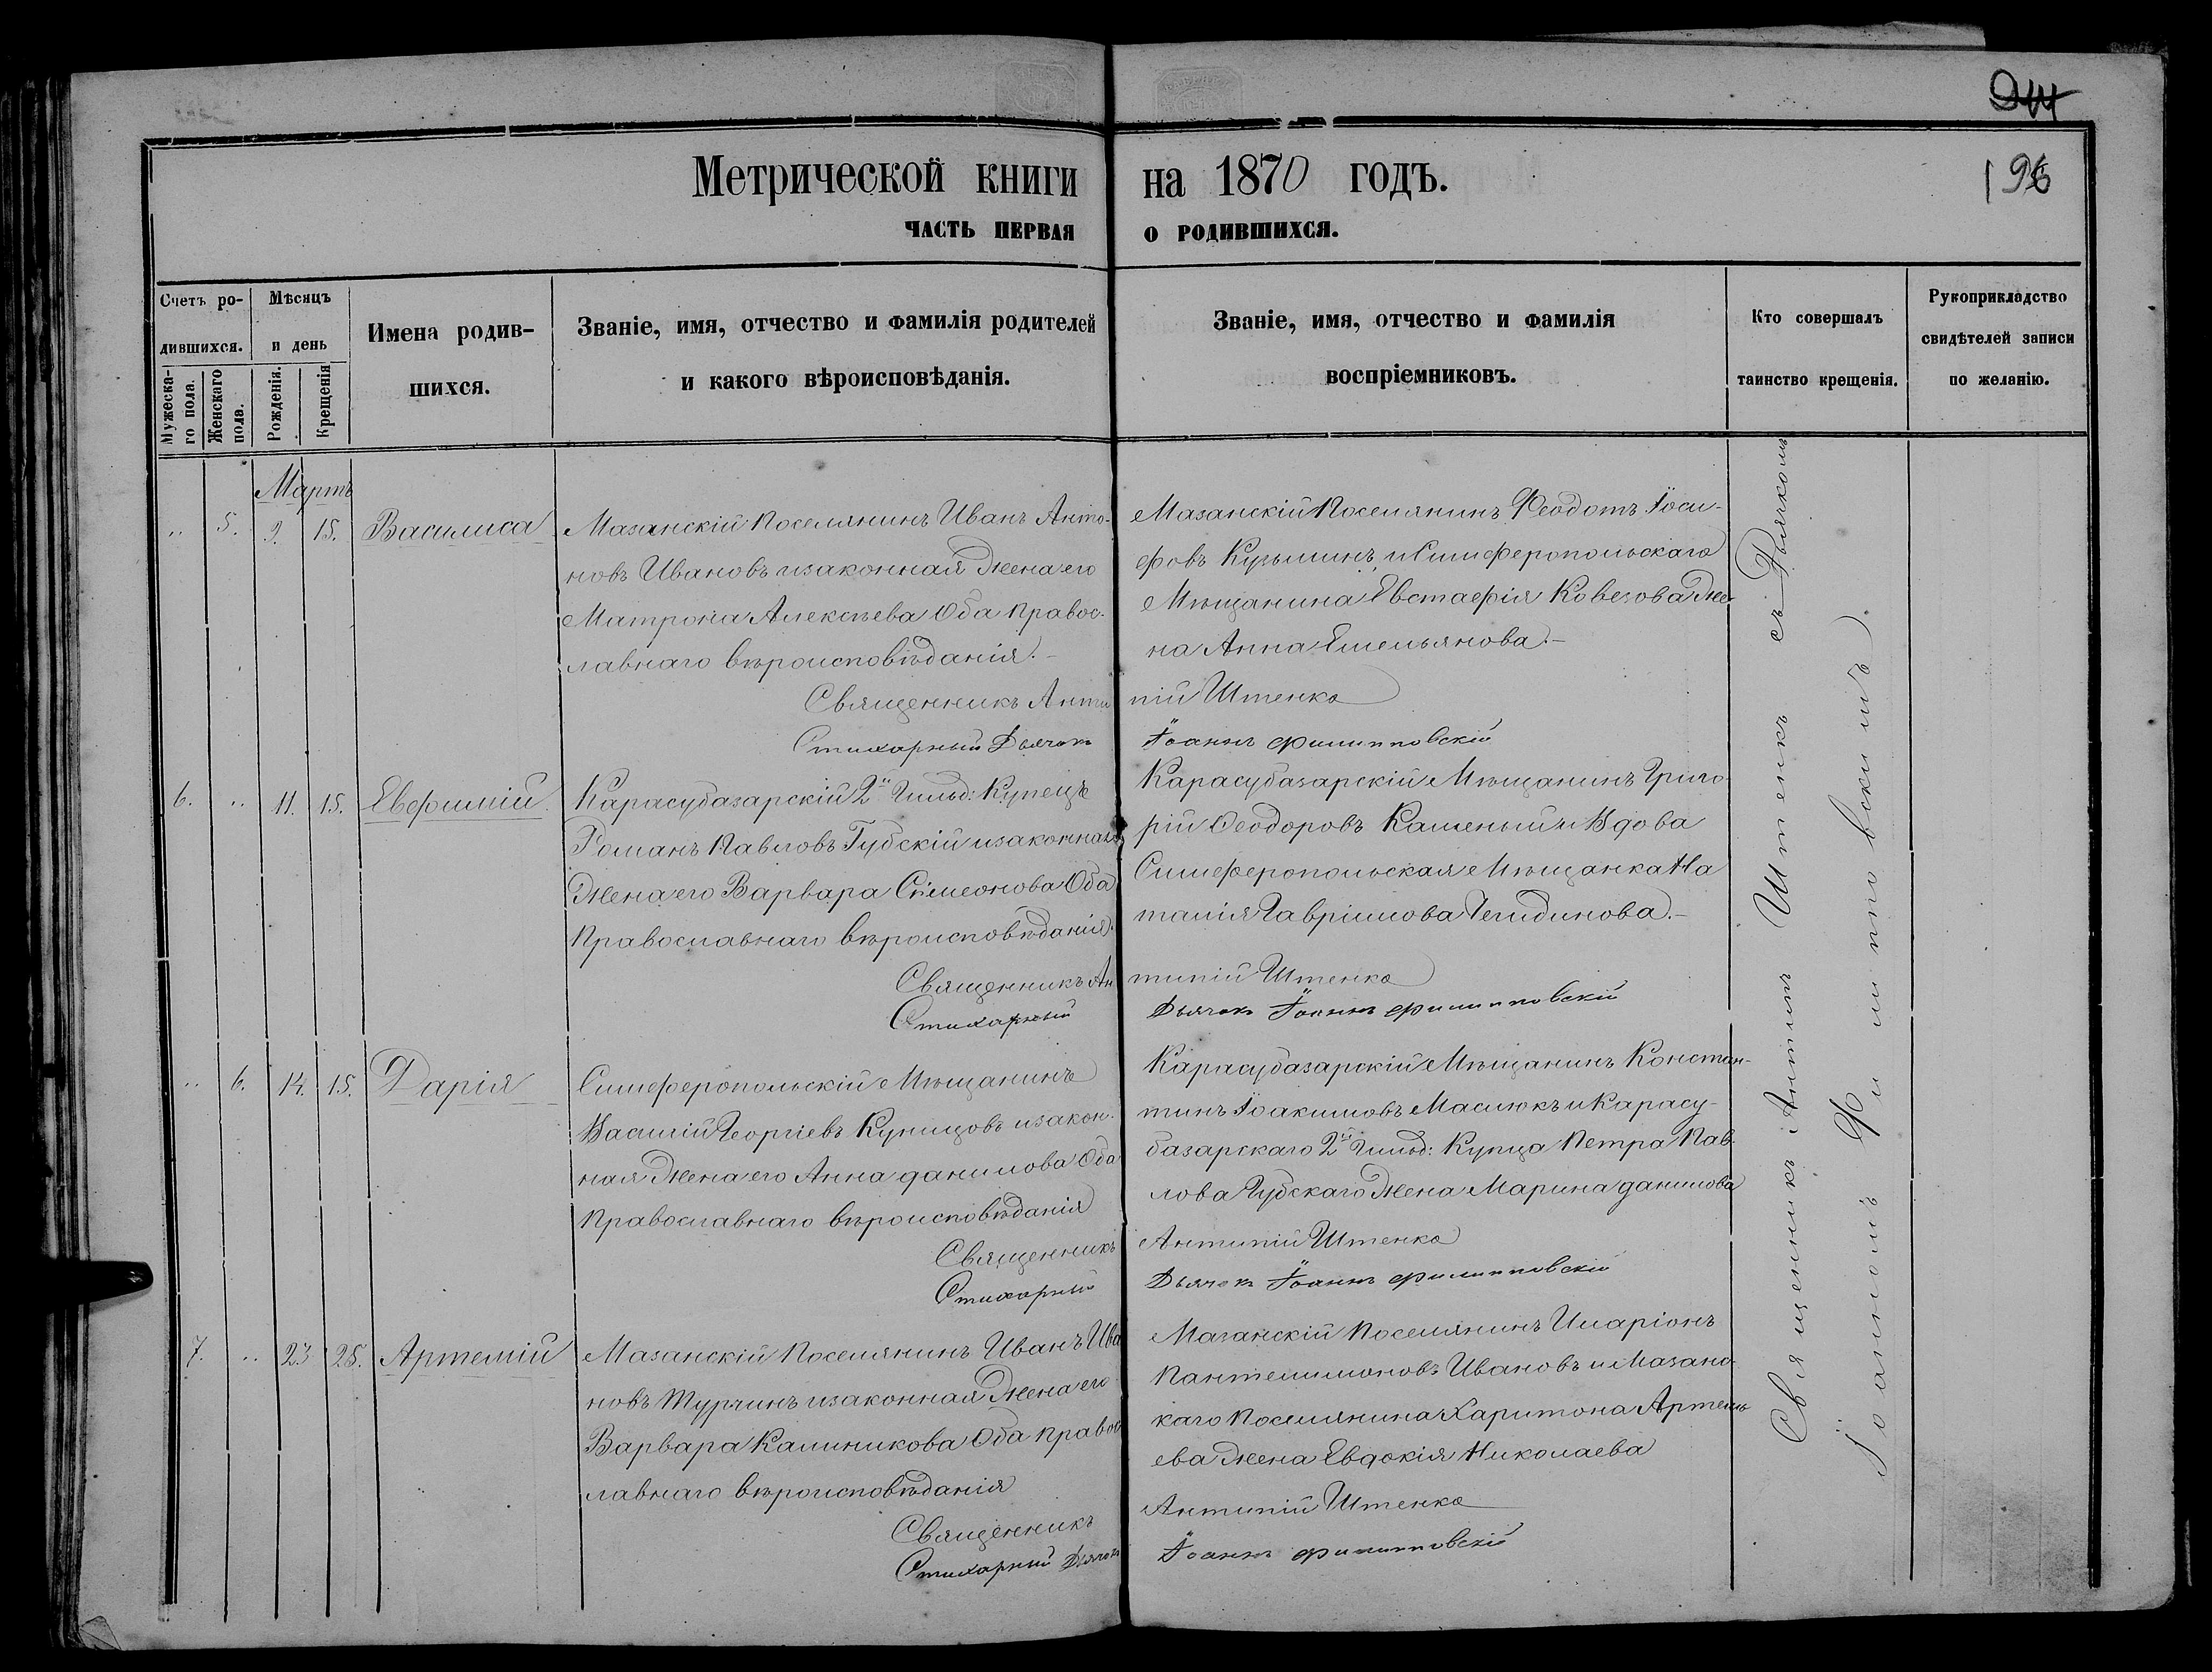 196
Метрической книги на 1870 годъ.
ЧАСТЬ ПЕРВАЯ О РОДИВШИХСЯ.
Счетъ ро-
дившихся.
Мужеска-
го пола.
Женскаго
пола.
Мѣсяцъ
и день
Рожденія.
Крещенія
Имена родив-
шихся.
Званіе, имя, отчество и фамилія родителей
и какого вѣроисповѣданія.
Званіе, имя, отчество и фамилія
воспріемниковъ.
Кто совершалъ
таинство крещенія.
Рукоприкладство
свидѣтелей записи
по желанію.
Мартъ
„ 5. 9. 15. Василиса
Мазанскій Поселянинъ Иванъ Анто-
новъ Ивановъ изаконная Жена его
Матрона Алексѣева Оба правос-
лавнаго вѣроисповѣданія.-
Мазанскій Поселянинъ Феодотъ Іоси-
фовъ Кузьминъ, и Симферопольскаго
Мѣщанина Евстафія Ковезова Же-
на Анна Емельянова.-
Священникъ Антипій Штенко
Стихарный Дьячокъ Іоаннъ Филипповскій
6. „ 11. 15. Евфимій
Карасубазарскій 2й Гильд: Купецъ
Романъ Павловъ Губскій изаконная
Жена его Варвара Симеонова Оба
Православнаго вѣроисповѣданія.
Карасубазарскій Мѣщанинъ Григо-
рій Феодоровъ Каменый и Вдова
Симферопольская Мѣщанка На
талія Гавріилова
Священникъ Антипій Штенко
Стихарный Дьячокъ Іоаннъ Филипповскій
„ 6. 14. 15. Дарія
Симферопольскій Мѣщанинъ
Василій Георгіевъ Купцовъ изакон-
ная Жена его Анна данилова Оба
Православнаго вѣроисповѣданія
Карасубазарскій Мѣщанинъ Констан-
тинъ Іоакимовъ Маслюкъ и Карасу-
базарскаго 2й Гильд: Купца Петра Пав-
лова Губскаго Жена Марина данилова
Священникъ Антипій Штенко
Стихарный Дьячокъ Іоаннъ Филипповскій
7. „ 23 25. Артемій
Мазанскій Поселянинъ Иванъ Ива
новъ Турчинъ изаконная Жена его
Варвара Калиникова Оба правос
лавнаго вѣроисповѣданія
Мазанскій Поселянинъ Иларіонъ
Пантелимоновъ Ивановъ и Мазанс-
каго Поселянина Харитона Артемь
ева Жена Евдокія Николаева
Священникъ Антипій Штенко
Стихарный Дьячокъ Іоаннъ Филипповскій
Священникъ Антипій Штенко съ Дьячкомъ
Іоанномъ Филипповскимъ